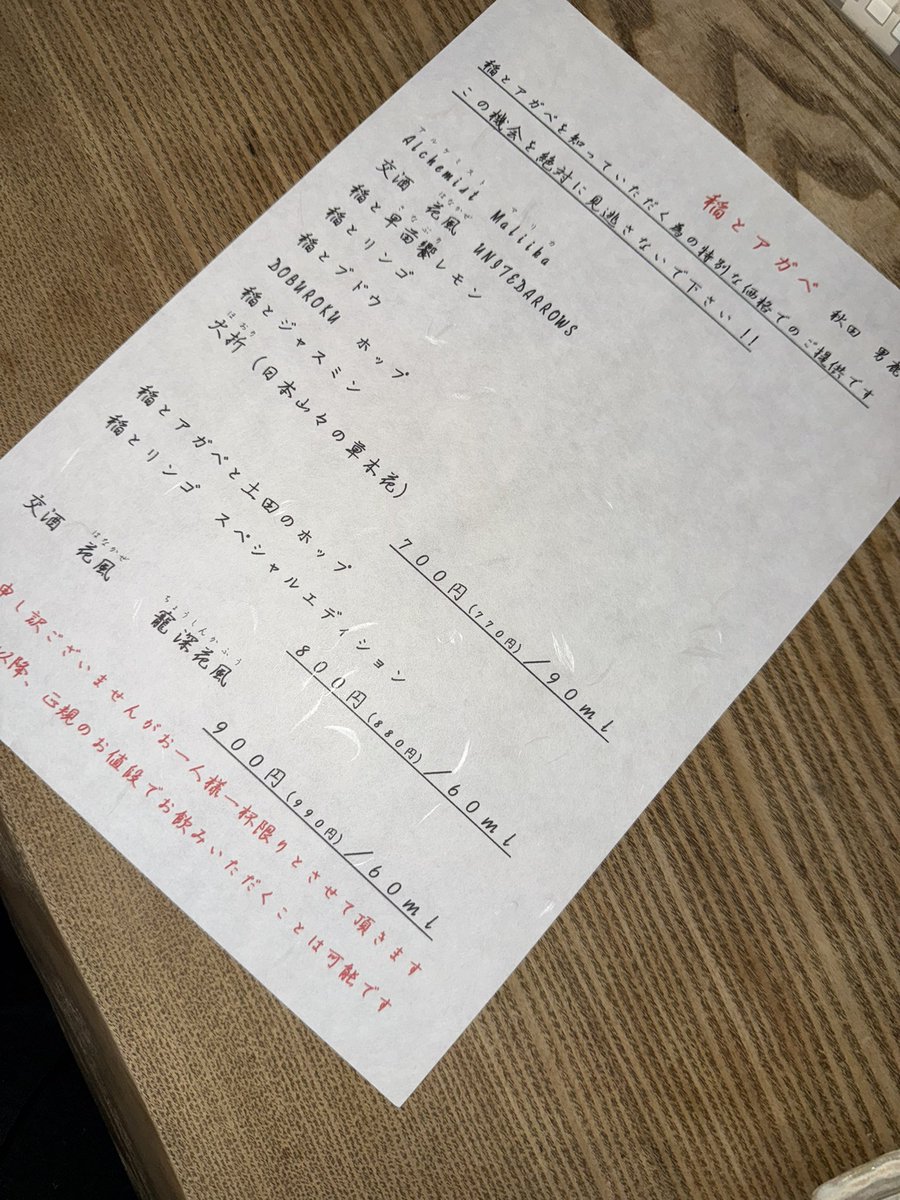 稲とアガベ 秋田 男鹿
稲とアガベを知っていただく為の特別な価格でのご提供です
この機会を絶対に見逃さないで下さい!!
アルケミスト
Alchemist Maliiha
はなかぜ
交酒 花風 UNITEDARROWS
さなぶり
稲と早苗饗レモン
稲とリンゴ
稲とブドウ
DOBUROKU ホップ
稲とジャスミン
はおり
火折 (日本山々の草木花)
700円(770円)/90ml
稲とアガベと土田のホップ
稲とリンゴ スペシャルエディション
800円(880円)/60ml
はなかぜ ちょうしんかふう
交酒 花風 寵深花風
900円(990円)/60ml
申し訳ございませんがお一人様一杯限りとさせて頂きます
以降、正規のお値段でお飲みいただくことは可能です